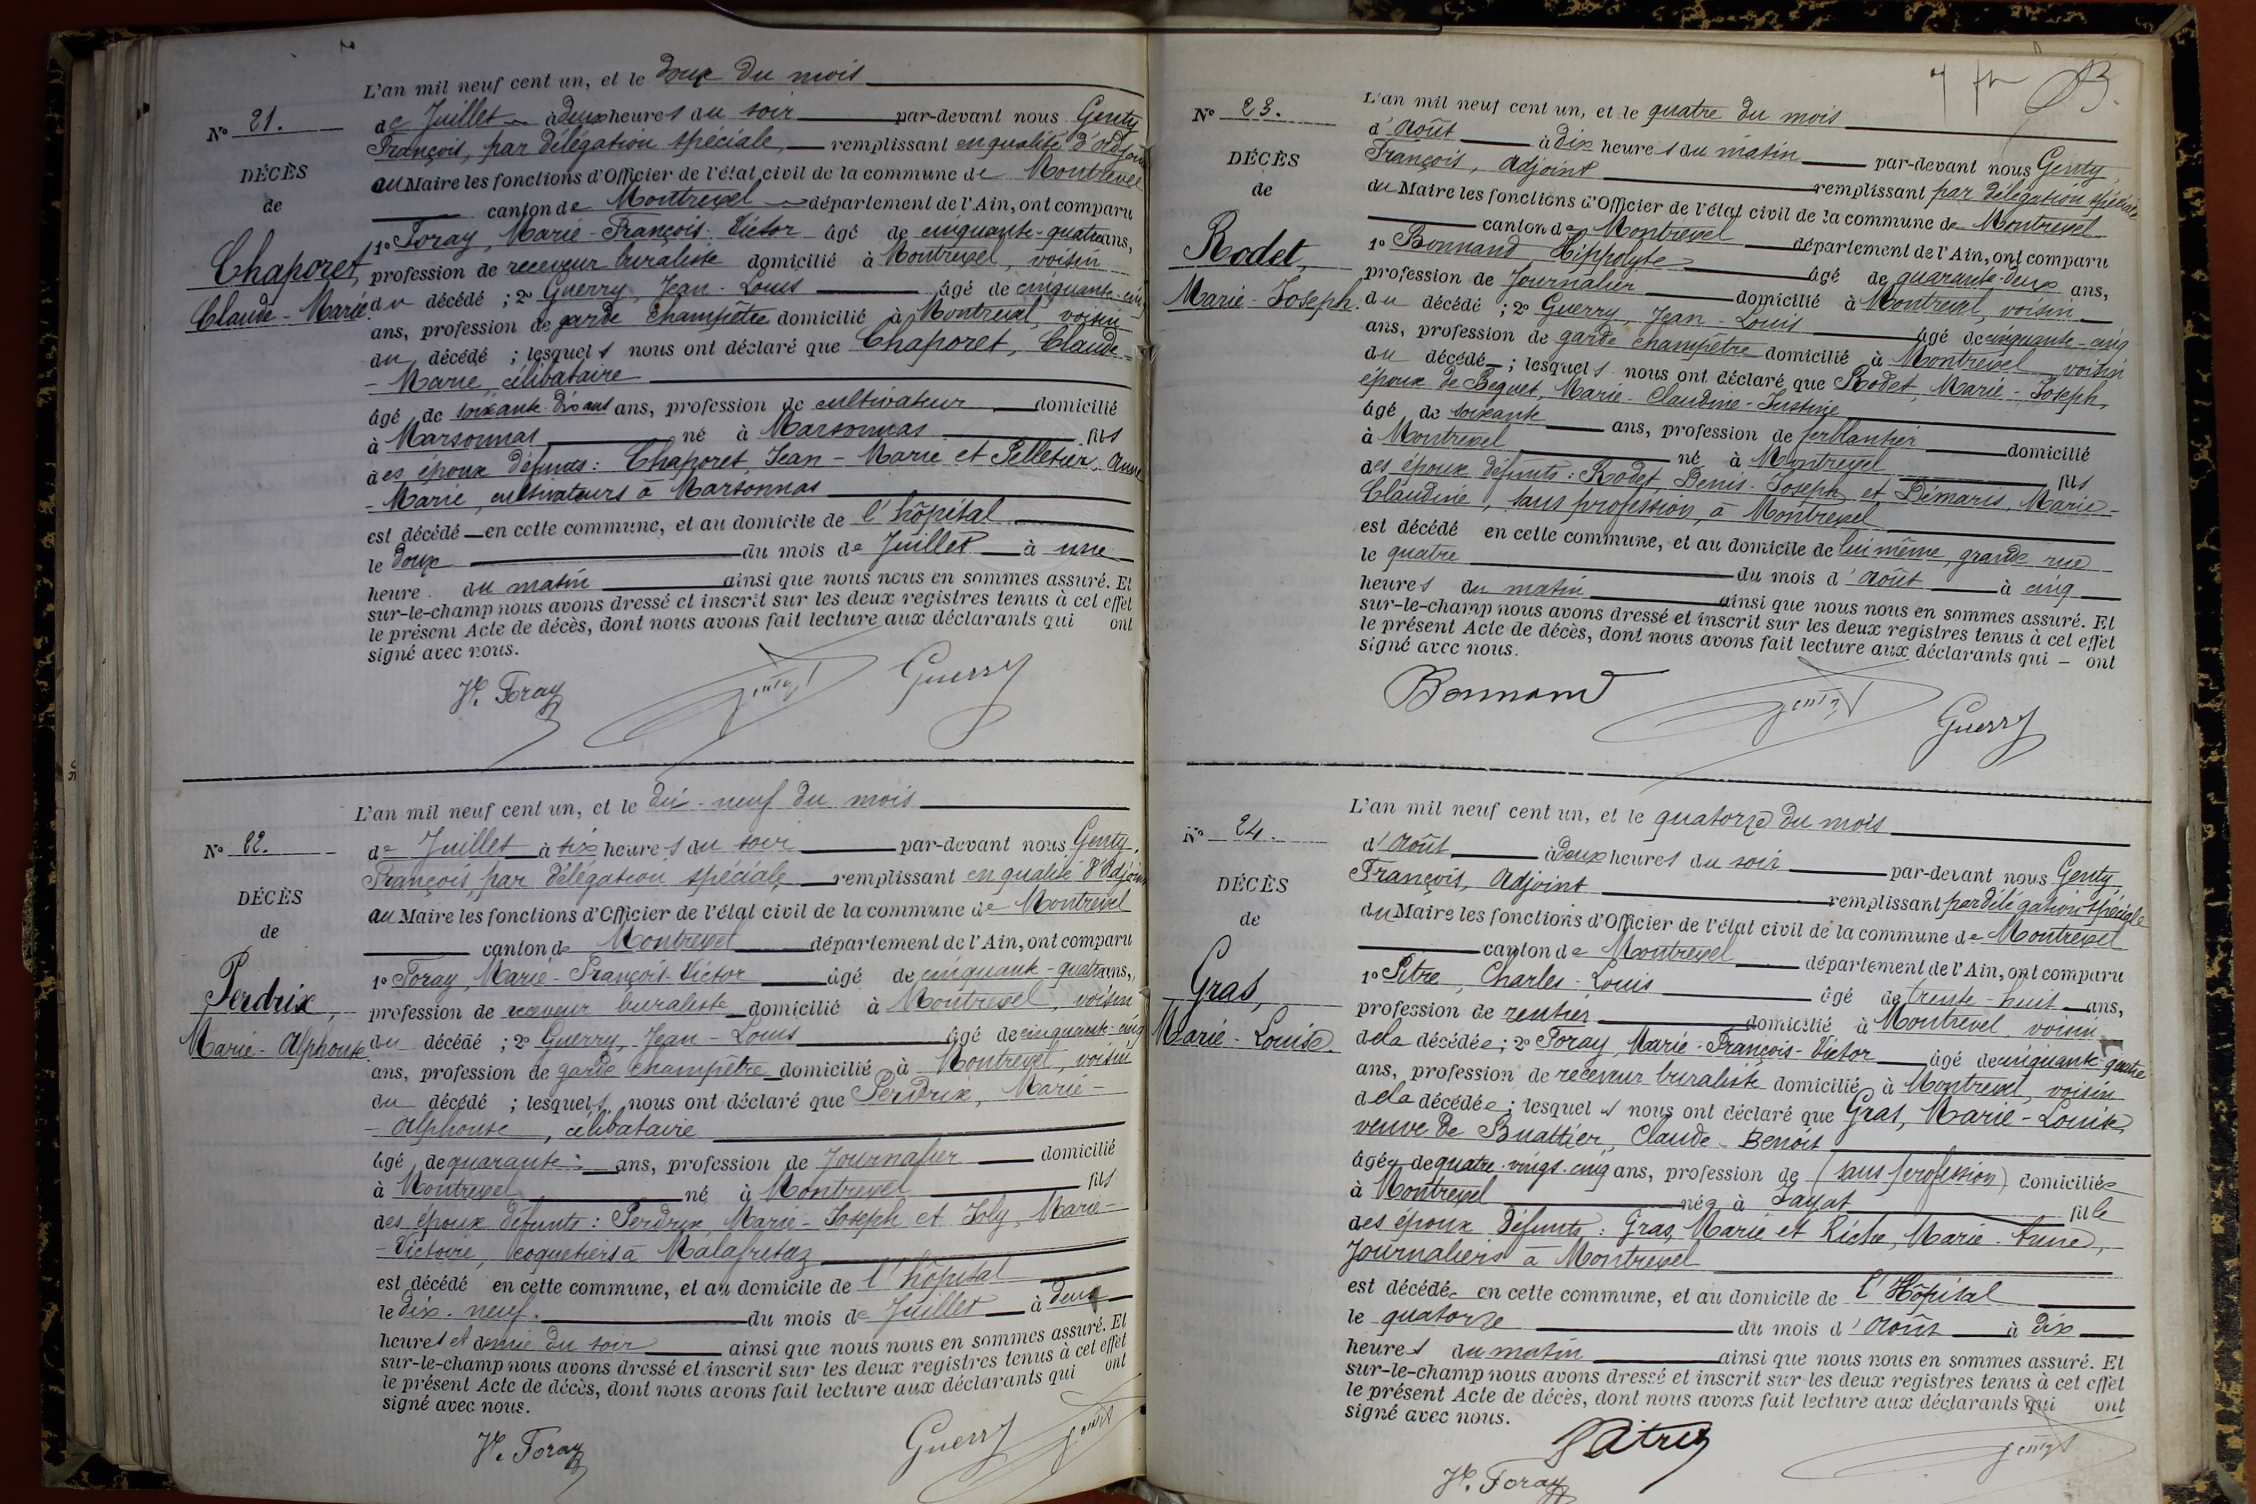 L'an mil neuf cent un, et le douze du mois
N° 21.
de Juillet à deux heures du soir par-devant nous Genty
François, par délégation spéciale, remplissant en qualité d'Adjoint
DÉCÈS
au Maire les fonctions d'Officier de l'état civil de la commune de Montrevel
de
canton de Montrevel département de l'Ain, ont comparu
1° Foray, Marie-François-Victor âgé de cinquante-quatre ans,
Chaporet,
profession de receveur buraliste domicilié à Montrevel, voisin
Claude-Marie.
du décédé ; 2° Guerry, Jean-Louis âgé de cinquante-cinq
ans, profession de garde champêtre domicilié à Montrevel, voisin
du décédé ; lesquels nous ont déclaré que Chaporet, Claude-
-Marie célibataire
âgé de soixante-dix ans ans, profession de cultivateur domicilié
à Marsonnas né à Marsonnas fils
des époux défunts : Chaporet, Jean-Marie et Pelletier, Anne
-Marie, cultivateurs à Marsonnas
est décédé en cette commune, et au domicile de l'hôpital
le douze du mois de Juillet à une
heure du matin ainsi que nous nous en sommes assuré. Et
sur-le-champ nous avons dressé et inscrit sur les deux registres tenus à cet effet
le présent Acte de décès, dont nous avons fait lecture aux déclarants qui ont
signé avec nous.
Vr. Foray Genty Guerry
L'an mil neuf cent un, et le dix-neuf du mois
N° 22.
de Juillet à six heures du soir par-devant nous Genty,
François, par délégation spéciale remplissant en qualité d'Adjoint
DÉCÈS
au Maire les fonctions d'Officier de l'état civil de la commune de Montrevel
de
canton de Montrevel département de l'Ain, ont comparu
1° Foray, Marie-François-Victor âgé de cinquante-quatre ans,
Perdrix,
profession de receveur buraliste domicilié à Montrevel, voisin
Marie-Alphonse.
du décédé ; 2° Guerry, Jean-Louis âgé de cinquante-cinq
ans, profession de garde champêtre domicilié à Montrevel, voisin
du décédé ; lesquels nous ont déclaré que Perdrix, Marie-
-Alphonse, célibataire
âgé de quarante ans, profession de Journalier domicilié
à Montrevel né à Montrevel fils
des époux défunts : Perdrix, Marie-Joseph et Joly, Marie-
-Victoire, coquetiers à Malafretaz
est décédé en cette commune, et au domicile de l'hôpital
le dix-neuf. du mois de Juillet à deux
heures et demie du soir ainsi que nous nous en sommes assuré. Et
sur-le-champ nous avons dressé et inscrit sur les deux registres tenus à cet effet
le présent Acte de décès, dont nous avons fait lecture aux déclarants qui ont
signé avec nous.
Vr. Foray Guerry Genty
L'an mil neuf cent un, et le quatre du mois
N° 23.
d'Août à dix heures du matin par-devant nous Genty,
DÉCÈS
François, Adjoint remplissant par délégation spéciale
de
du Maire les fonctions d'Officier de l'état civil de la commune de Montrevel
canton de Montrevel département de l'Ain, ont comparu
Rodet,
1° Bonnand Hippolyte âgé de quarante-deux ans,
profession de Journalier domicilié à Montrevel, voisin
Marie-Joseph.
du décédé ; 2° Guerry, Jean-Louis âgé de cinquante-cinq
ans, profession de garde champêtre domicilié à Montrevel voisin
du décédé ; lesquels nous ont déclaré que Rodet, Marie-Joseph,
époux de Beguet, Marie-Claudine-Justine
âgé de soixante ans, profession de ferblantier domicilié
à Montrevel né à Montrevel fils
des époux défunts : Rodet, Denis-Joseph et Démaris, Marie-
Claudine, sans profession, à Montrevel
est décédé en cette commune, et au domicile de lui même, grande rue
le quatre du mois d'Août à cinq
heures du matin ainsi que nous nous en sommes assuré. Et
sur-le-champ nous avons dressé et inscrit sur les deux registres tenus à cet effet
le présent Acte de décès, dont nous avons fait lecture aux déclarants qui ont
signé avec nous.
Bonnand Genty Guerry
L'an mil neuf cent un, et le quatorze du mois
N° 24.
d'Août à deux heures du soir par-devant nous Genty,
DÉCÈS
François, Adjoint remplissant par délégation spéciale
de
du Maire les fonctions d'Officier de l'état civil de la commune de Montrevel
canton de Montrevel département de l'Ain, ont comparu
Gras,
1° Pitre, Charles-Louis âgé de trente-huit ans,
profession de rentier domicilié à Montrevel, voisin
Marie-Louise.
de la décédée ; 2° Foray, Marie-François-Victor âgé de cinquante-quatre
ans, profession de receveur buraliste domicilié à Montrevel, voisin
de la décédée ; lesquels nous ont déclaré que Gras, Marie-Louise,
veuve de Buattier, Claude-Benoit
âgée de quatre-vingt-cinq ans, profession de (sans profession) domiciliée
à Montrevel née à Jayat fille
des époux défunts : Gras, Marie et Riche, Marie-Anne,
Journaliers à Montrevel
est décédée en cette commune, et au domicile de l'Hôpital
le quatorze du mois d'Août à dix
heures du matin ainsi que nous nous en sommes assuré. Et
sur-le-champ nous avons dressé et inscrit sur les deux registres tenus à cet effet
le présent Acte de décès, dont nous avons fait lecture aux déclarants qui ont
signé avec nous.
Genty
Vr. Foray